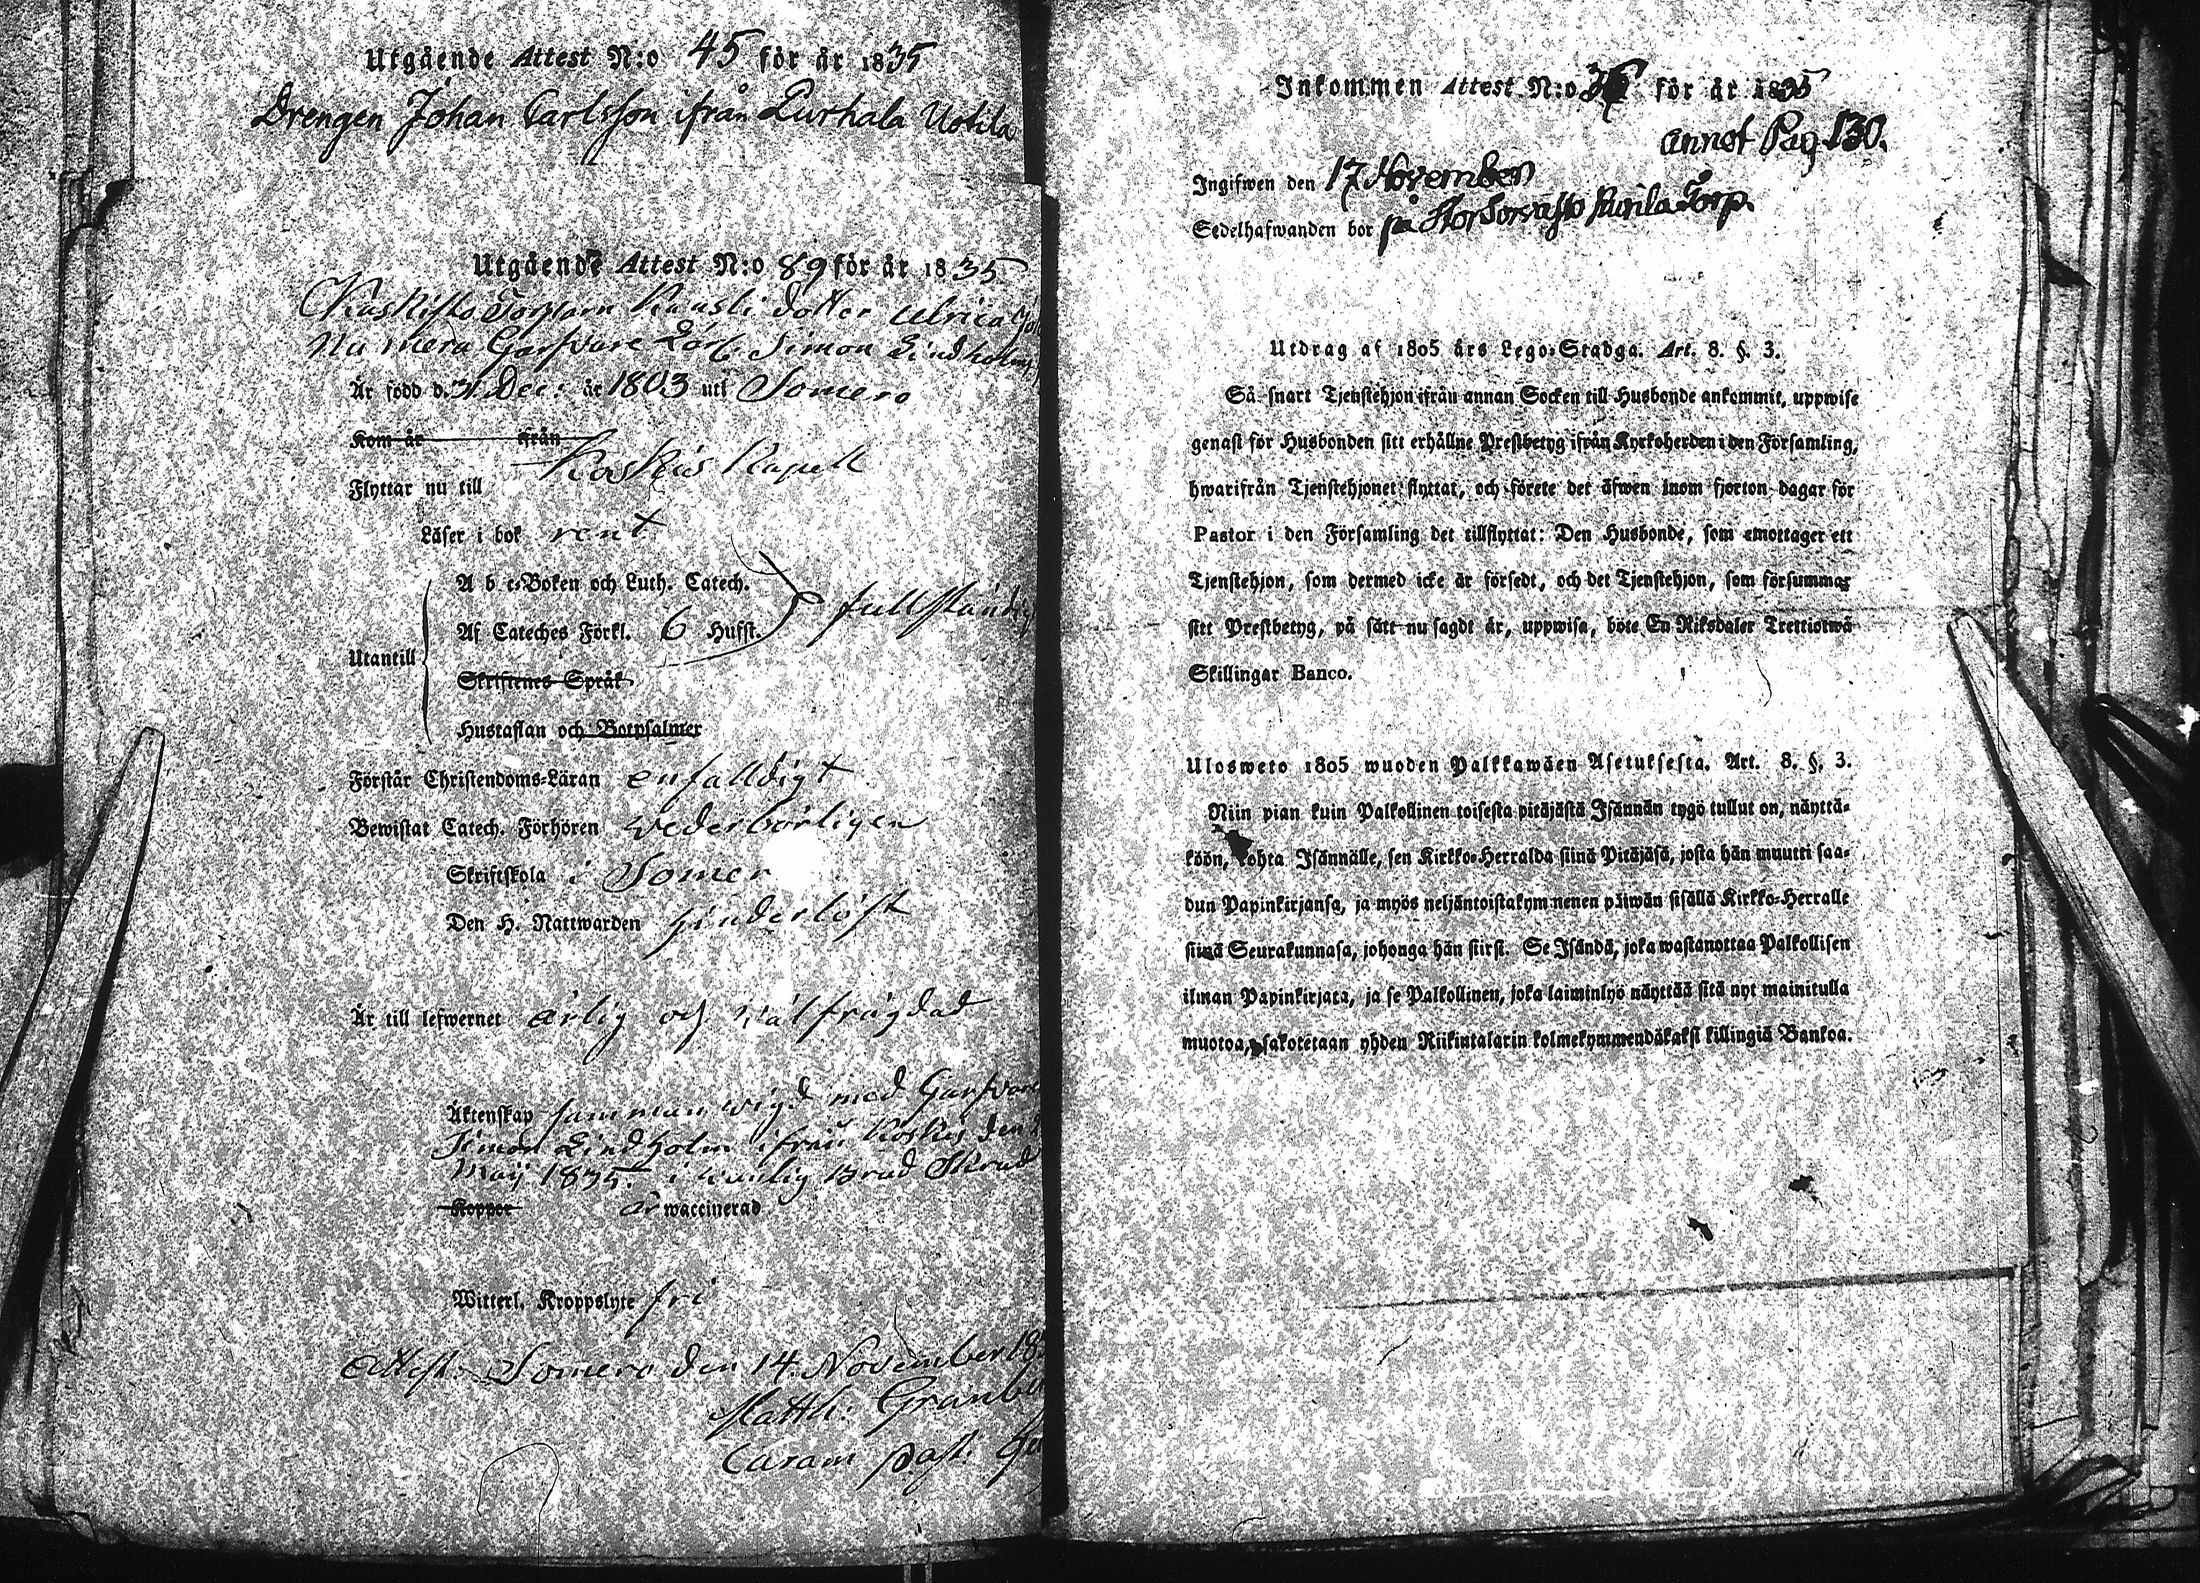 Utgående Attest N:o 45 för år 1835
Drengen Johan Carlsson ifrån Purhala Uotila
Utgående Attest N:o 89 för år 1835
Torparn dotter Ulrica
Nu mera Garfvare Simon Lindholms
Är född d. 31 Dec: år 1803 uti Somero
Kom år ifrån
Flyttar nu till Koskis Kapell
Läser i bok rent
A b c-Boken och Luth. Catech.
Af Cateches Förkl. 6 Hufst. fullständig
Utantill
Skriftenes Språk
Hustaflan och Botpsalmer
Förstår Christendoms-Läran enfalldigt
Bewistat Catech. Förhören wederbörligen
Skriftskola i Somer
Den H. Nattwarden hinderlöst
Är till lefwernet ärlig och wälfrägdad
Äktenskap samman wigd med Garfvare
Simon Lindholm ifrån Koskis den
Maij 1835. i wanlig Brud Skrud
Koppor är waccinerad
Witterl. Kroppslyte fri
Attest. Somero den 14 November 18
Matth: Granbe
Inkommen Attest N:o för år 1835
annot Pag 130.
Ingifwen den 17 November
Sedelhafwanden bor på Torp.
Utdrag af 1805 års Lego-Stadga. Art. 8. §. 3.
Så snart Tjenstehjon ifrån annan Socken till Husbonde ankommit, uppwise
genast för Husbonden sitt erhållne Prestbetyg ifrån Kyrkoherden i den Församling,
hwarifrån Tjenstehjonet flyttat, och förete det äfwen inom fjorton dagar för
Pastor i den Församling det tillflyttat: Den Husbonde, som emottager ett
Tjenstehjon, som dermed icke är försedt, och det Tjenstehjon, som försummar
sitt Prestbetyg, på sätt nu sagdt är, uppwisa, böte En Riksdaler Trettiotwå
Skillingar Banco.
Ulosweto 1805 wuoden Palkkawäen Asetuksesta. Art. 8. §. 3.
Niin pian kuin Palkollinen toisesta pitäjästä Isännän tygö tullut on, näyttä-
köön, kohta Isännälle, sen Kirkko-Herralda siinä Pitäjäsä, josta hän muutti saa-
dun Papinkirjansa, ja myös neljäntoistakymmenen päiwän sisällä Kirkko-Herralle
siinä Seurakunnasa, johonga hän siirsi. Se Isändä, joka wastanottaa Palkollisen
ilman Papinkirjata, ja se Palkollinen, joka laiminlyö näyttää sitä nyt mainitulla
muotoa, sakotetaan yhden Riikintalarin kolmekymmendäkaksi killingiä Bankoa.